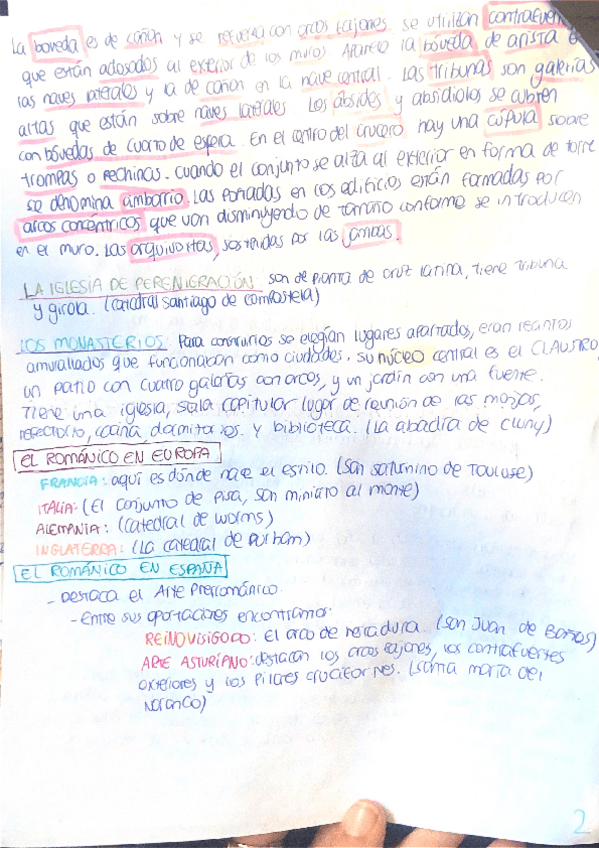 La boveda es de cañon y se refuerza con arcos fajones. se utilizan contrafuer
que están adosados al exterior de los muros. Aparece la bóveda de arista e
las naves laterales y la de cañon en la nave central. Las tribunas son galerías
altas que están sobre naves laterales. Los ábsides y absidiolos se cubren
con bóvedas de cuarto de esfera. En el centro del crucero hay una cúpula sobre
trompas o pechinas. cuando el conjunto se alza al exterior en forma de torre
se denomina cimborrio. Las portadas en los edificios están formadas por
arcos concéntricos que van disminuyendo de tamaño conforme se introducen
en el muro. Las arquivoltas, sostenidas por las jambas.
LA IGLESIA DE PEREGRINACIÓN: son de planta de cruz latina, tiene tribuna
y girola. (catedral santiago de compostela)
LOS MONASTERIOS: Para construirlos se elegían lugares apartados, eran recintos
amurallados que funcionaban como ciudades. Su núcleo central es el CLAUSTRO,
un patio con cuatro galerías con arcos, y un jardin con una fuente.
Tiene una iglesia, sala capitular lugar de reunión de las monjas,
refectorio, cocina, dormitorios. y biblioteca. (La abadía de cluny)
EL ROMÁNICO EN EUROPA
FRANCIA: aquí es dónde nace el estilo. (San saturnino de Toulouse)
ITALIA: (El conjunto de pisa, san miniato al monte)
ALEMANIA: (catedral de worms)
INGLATERRA: (La catedral de Durham)
EL ROMÁNICO EN ESPAÑA
- Destaca el Arte Prerrománico.
- Entre sus aportaciones encontramos:
REINO VISIGODO: El arco de herradura. (San Juan de Baños)
ARTE ASTURIANO: destacan los arcos fajones, los contrafuertes
exteriores y los pilares cruciformes. (santa maría del
Naranco)
2